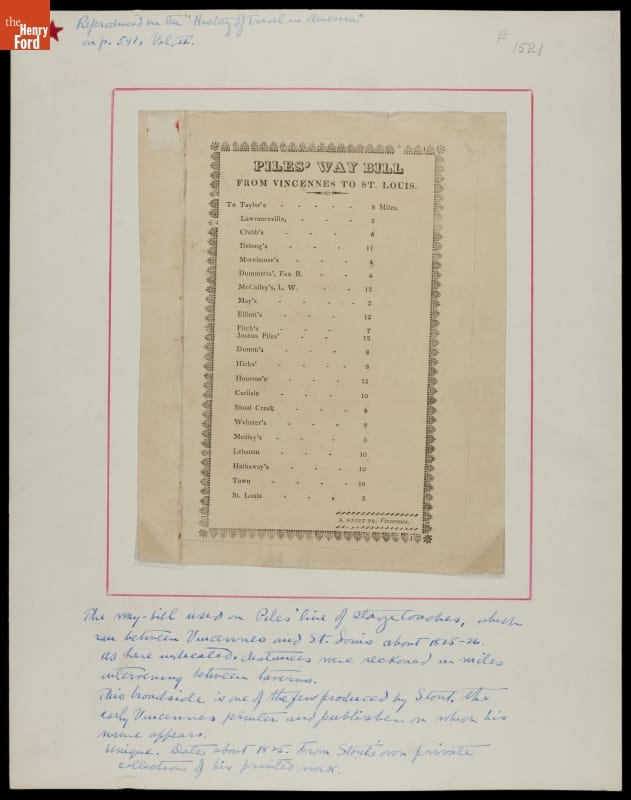 the
Henry
Ford
Reproduced in the "History of Travel in America"
on p. 591, Vol. II.
# 1521
PILES' WAY BILL
FROM VINCENNES TO ST. LOUIS.
To Taylor's - - - - - 8 Miles.
Lawranceville, - - - 2
Clubb's - - - 6
Delong's - - - 11
Morehouse's - - - 4
Dummetts', Fox R. - - 4
McCalley's, L. W. - - 12
May's - - - - 3
Elliott's - - - 12
Fitch's - - - 7
Joshua Piles' - - 12
Dumm's - - - 8
Hicks' - - - - 6
Houston's - - - 12
Carlisle - - - 10
Shoal Creek - - - 8
Webster's - - - 9
Medley's - - - 5
Lebanon - - - 10
Hathaway's - - - 10
Town - - - - 10
St. Louis - - - 2
E. STOUT PR. Vincennes.
The way-bill used on Piles' line of stage coaches, which
ran between Vincennes and St. Louis about 1825-26.
As here indicated, distances were reckoned in miles
intervening between taverns.
This broadside is one of the few produced by Stout, the
early Vincennes printer and publisher on which his
name appears.
Unique. Dates about 1825. From Stout's own private
collection of his printed work.